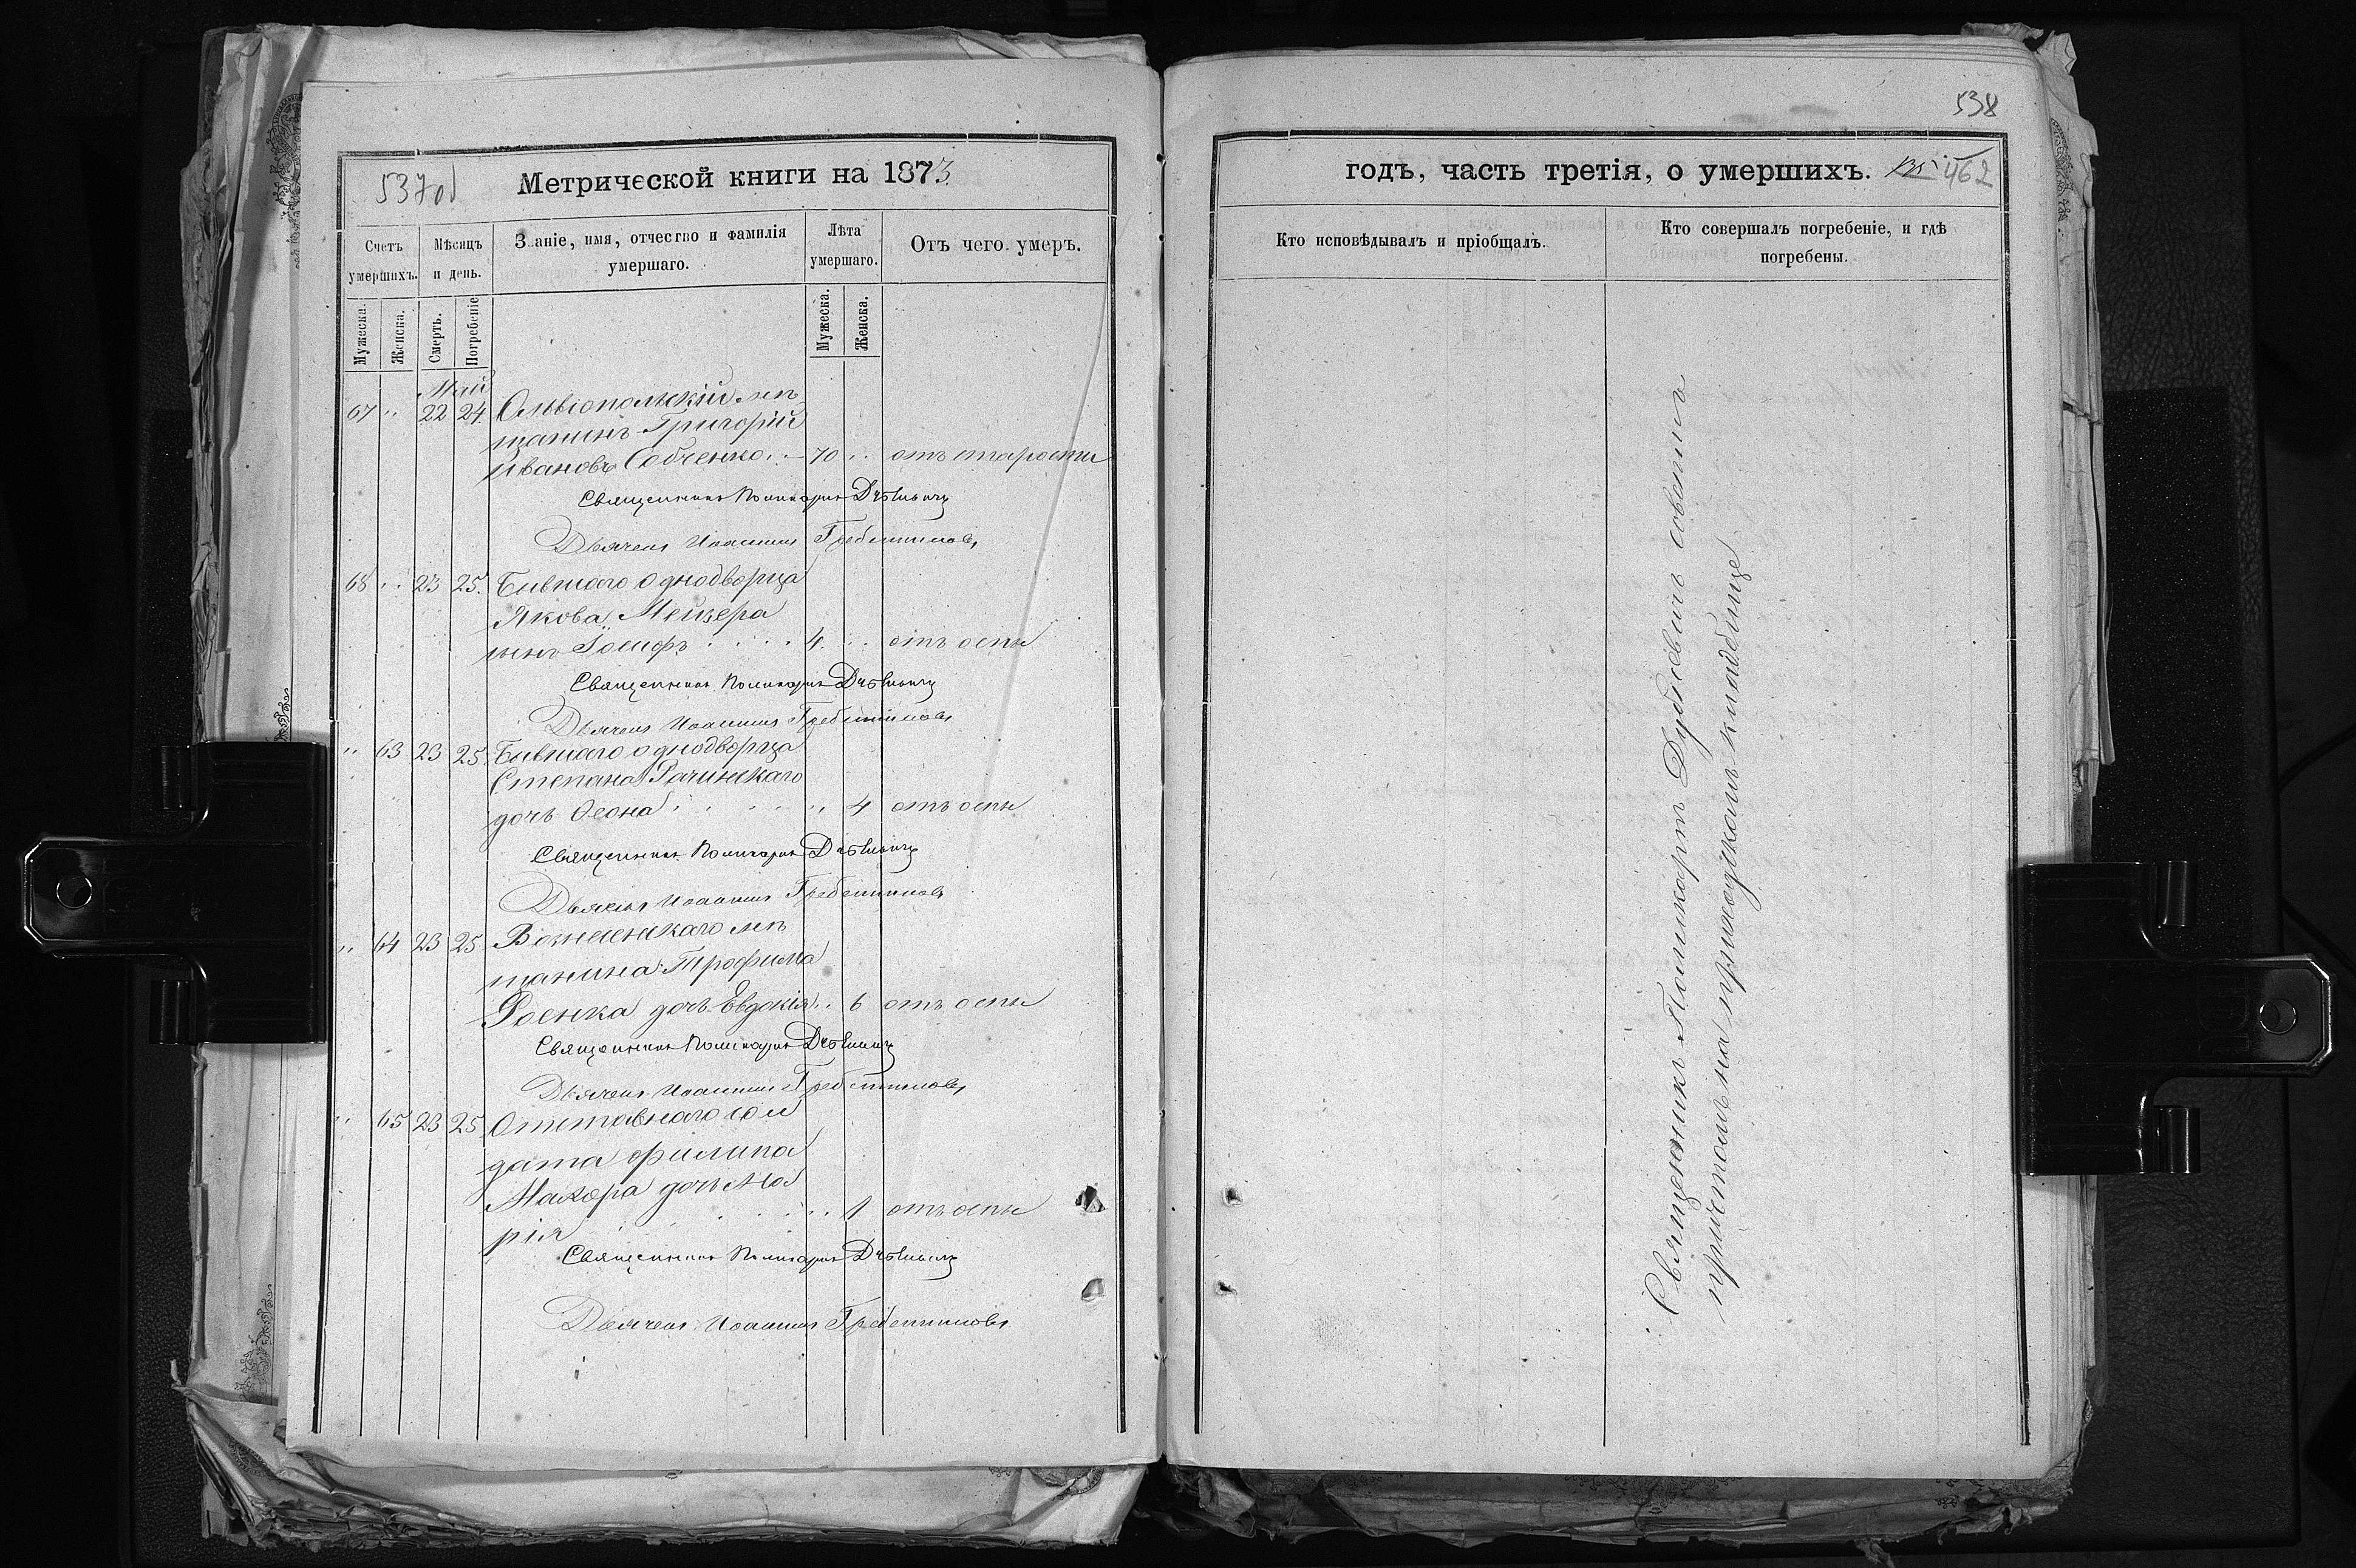 537об
Метрической книги на 1873.
Счетъ умершихъ.
Мѣсяцъ и день.
Званіе, имя, отчество и фамилія умершаго.
Лѣта умершаго.
Отъ чего умеръ.
Мужеска.
Женска.
Смерть.
Погребеніе
Мужеска.
Женска.
Май
67 " 22 24. Ольвіопольскій мѣ
щанинъ Григорій
Ивановъ Собченко 70 отъ старости
Священникъ Поликарпъ Дубневичъ
Дьячекъ Иоаннъ Гребенниковъ
68 " 23 25. Бывшаго однодворца
Якова Мейзера
сынъ Іосифъ 4 отъ оспы
Священникъ Поликарпъ Дубневичъ
Дьячекъ Иоаннъ Гребенниковъ
" 63 23 25. Бывшаго однодворца
Степана Рачинскаго
дочь Ѳеона " 4 отъ оспы
Священникъ Поликарпъ Дубневичъ
Дьячекъ Иоаннъ Гребенниковъ
" 64 23 25 Вознесенскаго мѣ
щанина Трофима
Роенка дочь Евдокія " 6 отъ оспы
Священникъ Поликарпъ Дубневичъ
Дьячекъ Иоаннъ Гребенниковъ
" 65 23 25 Отставнаго сол
дата Филипа
Мазора дочь Ма
рія " 1 отъ оспы
Священникъ Поликарпъ Дубневичъ
Дьячекъ Иоаннъ Гребенниковъ
538
годъ, часть третія, о умершихъ.
462
Кто исповѣдывалъ и пріобщалъ.
Кто совершалъ погребеніе, и гдѣ погребены.
Священникъ Поликарпъ Дубневичъ совершилъ
причтомъ на приходскомъ кладбищѣ